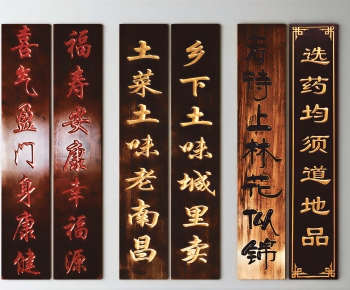 选药均须道地品
若待上林花似锦
乡下土味城里卖
土菜土味老南昌
福寿安康幸福源
喜气盈门身康健